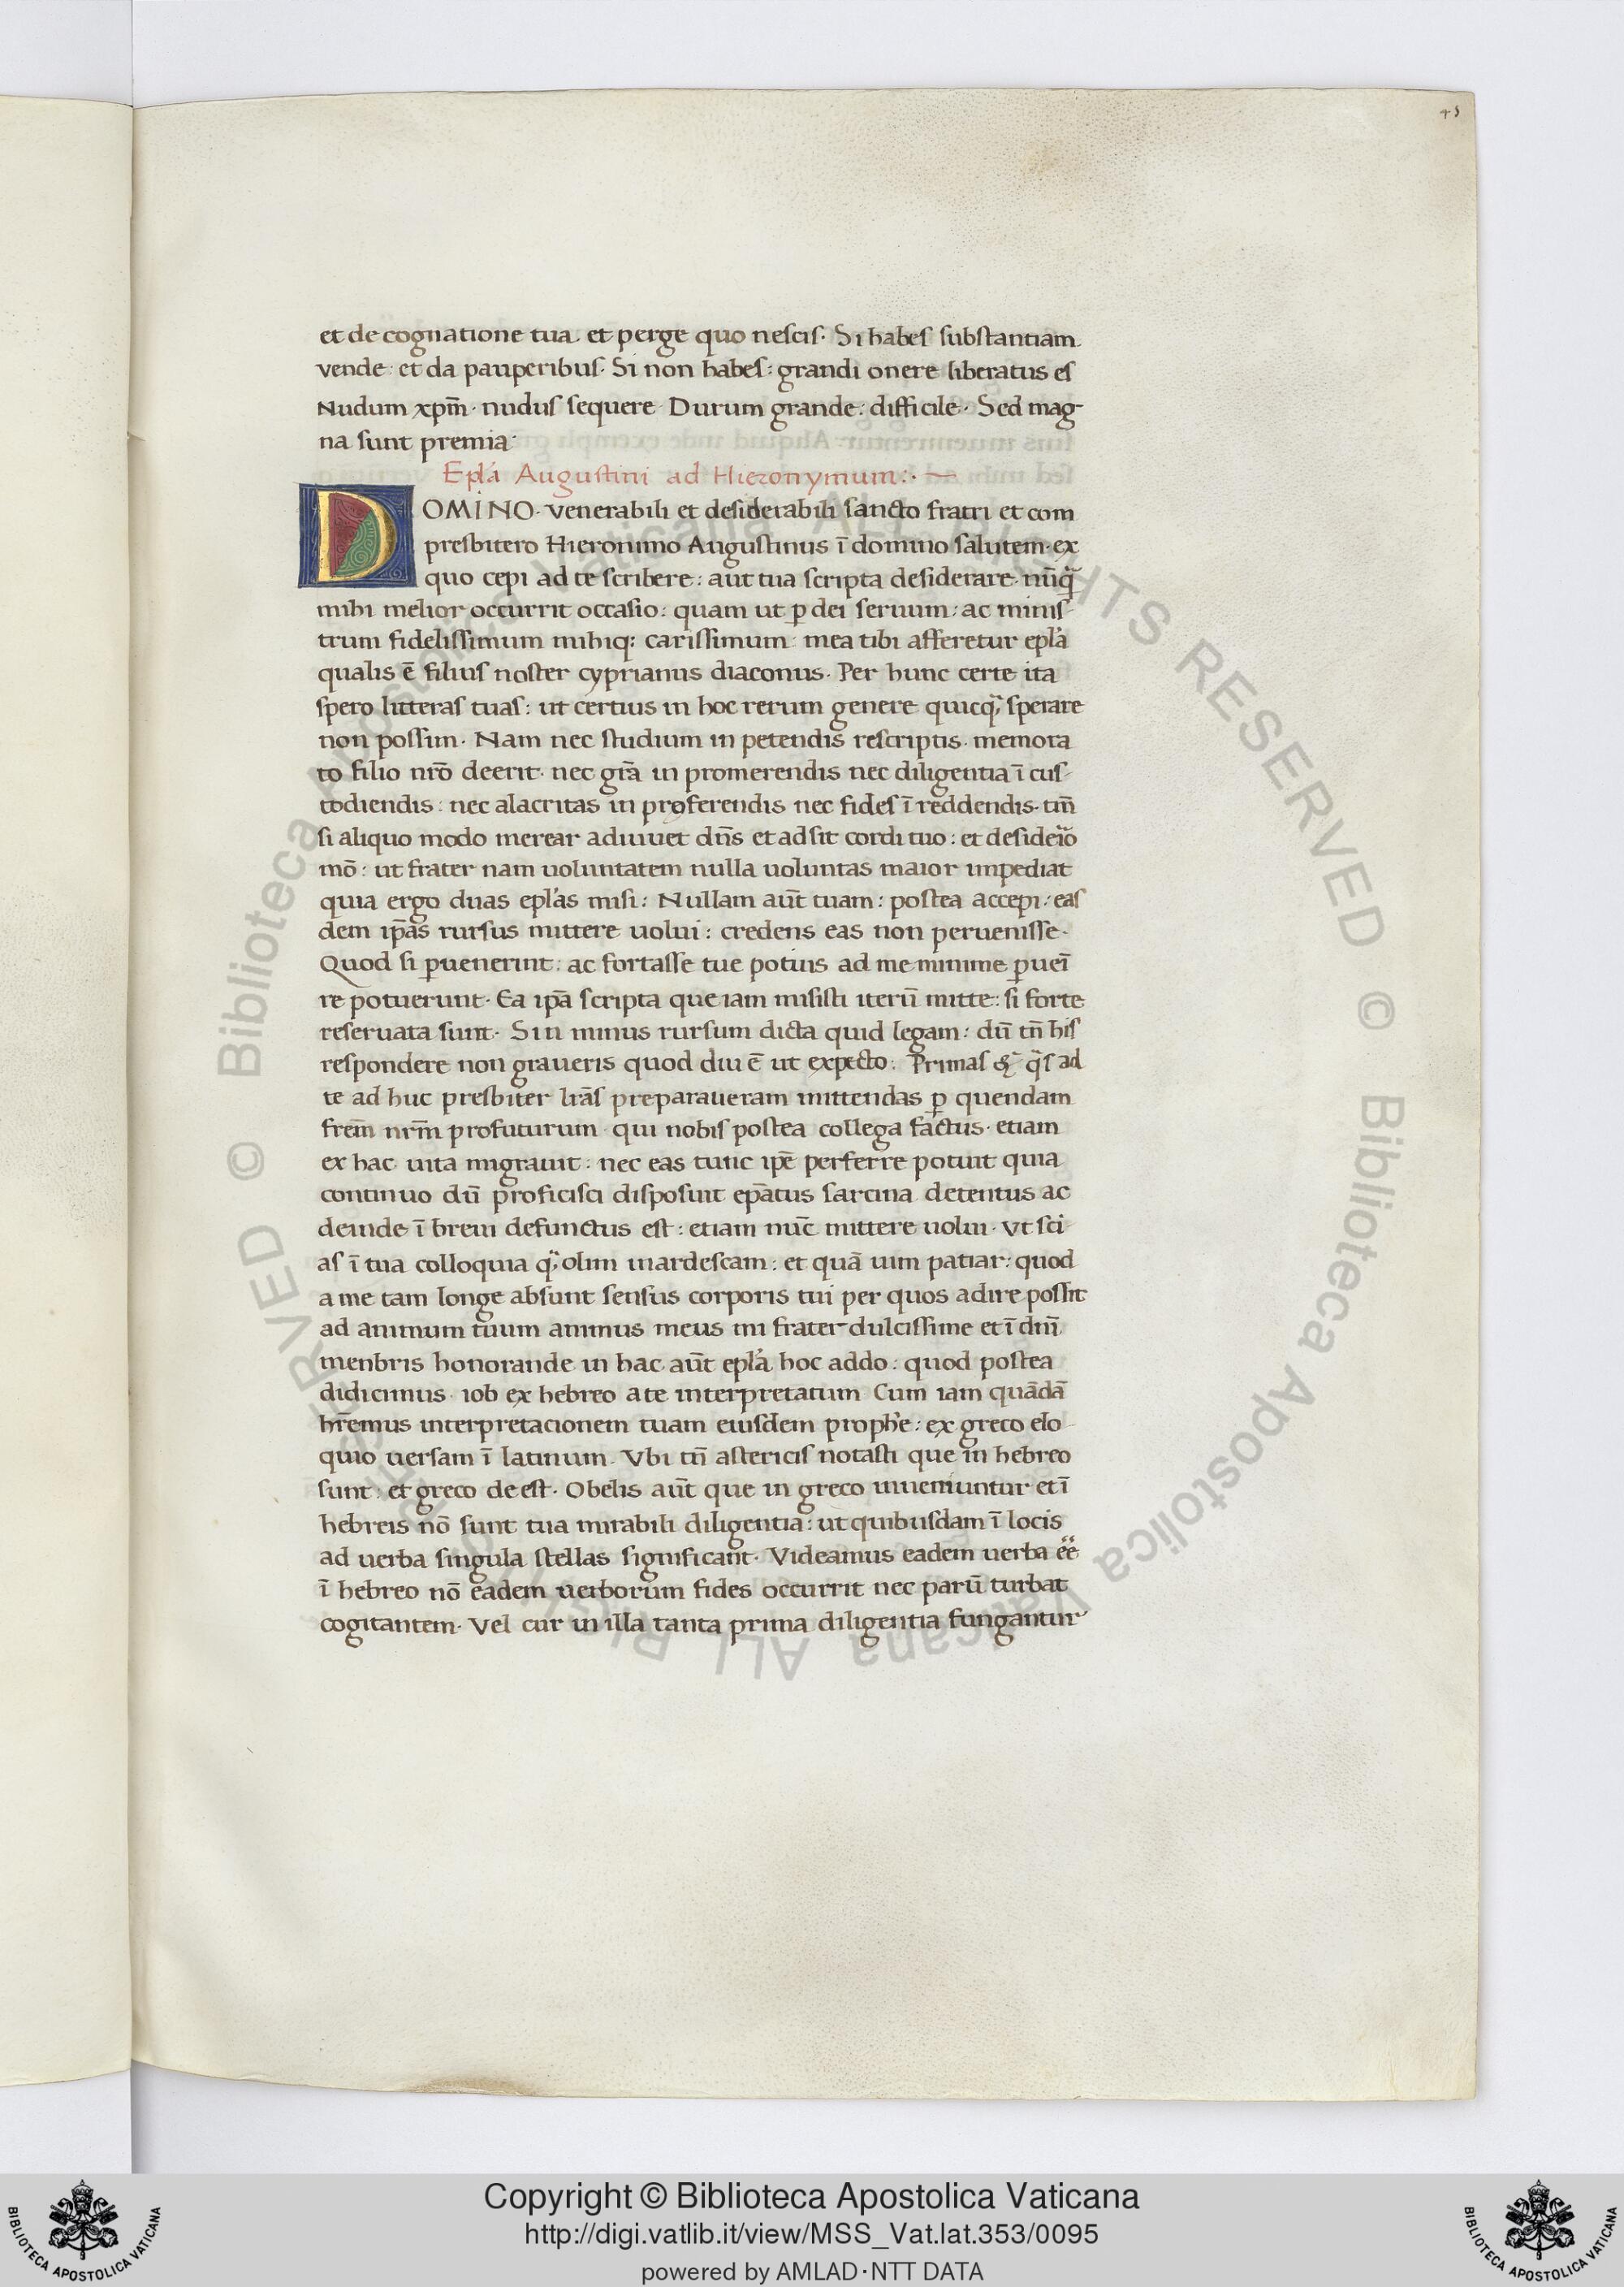 45
et de cognatione tua. et perge quo nescis. Si habes substantiam
vende: et da pauperibus. Si non habes: grandi onere liberatus es
Nudum xpm̄. nudus sequere Durum grande: difficile. Sed mag-
na sunt premia:
Epl̄a Augustini ad Hieronymum:·
DOMINO. venerabili et desiderabili sancto fratri et com
presbitero Hieronimo Augustinus ī domino salutem. ex
quo cepi ad te scribere: aut tua scripta desiderare. nūq̄
mihi melior occurrit occasio: quam ut ꝑ dei seruum: ac minis-
trum fidelissimum mihiq: carissimum: mea tibi afferetur epl̄a
qualis ē filius noster cyprianus diaconus. Per hunc certe ita
spero litteras tuas: ut certius in hoc rerum genere quicq̄ sperare
non possim. Nam nec studium in petendis rescriptis. memora
to filio nrō deerit. nec grā in promerendis nec diligentia ī cus-
todiendis: nec alacritas in proferendis nec fides ī reddendis. tm̄
si aliquo modo merear adiuuet dn̄s et adsit cordi tuo: et desiderio
mō: ut frater nam uoluntatem nulla uoluntas maior impediat
quia ergo duas epl̄as misi: Nullam aūt tuam: postea accepi: eas
dem ip̄as rursus mittere uolui: credens eas non peruenisse.
Quod si ꝑuenerint: ac fortasse tue potius ad me minime ꝑueī
re potuerunt. Ea ip̄a scripta que iam misisti iterū mitte: si forte
reseruata sunt. Sin minus rursum dicta quid legam: dū tn̄ his
respondere non graueris quod diu ē ut expecto: Primas ad
te ad huc presbiter lr̄as preparaueram mittendas ꝑ quendam
frem̄ nrm̄ profuturum. qui nobis postea collega factus. etiam
ex hac uita migrauit: nec eas tunc ip̄e perferre potuit quia
continuo dū proficisci disposuit ep̄atus sarcina detentus ac
deinde ī breui defunctus est: etiam nūc mittere uolui. Vt sci
as ī tua colloquia q̄ olim inardescam: et quā uim patiar: quod
a me tam longe absunt sensus corporis tui per quos adire possit
ad animum tuum animus meus mi frater dulcissime et ī dnī
menbris honorande in hac aūt epl̄a hoc addo: quod postea
didicimus. iob ex hebreo a te interpretatum Cum iam quādā
hr̄emus interpretacionem tuam eiusdem prophe: ex greco elo-
quio uersam ī latinum. Vbi tn̄ astericis notasti que in hebreo
sunt: et greco deest. Obelis aūt que in greco inueniuntur et ī
hebreis nō sunt tua mirabili diligentia: ut quibusdam ī locis
ad uerba singula stellas significant. Videamus eadem uerba eē
ī hebreo nō eadem uerborum fides occurrit nec parū turbat
cogitantem. Vel cur in illa tanta prima diligentia fungantur
© Biblioteca Apostolica Vaticana ALL RIGHTS RESERVED © Biblioteca Apostolica Vaticana ALL RIGHTS RESERVED
Copyright © Biblioteca Apostolica Vaticana
http://digi.vatlib.it/view/MSS_Vat.lat.353/0095
powered by AMLAD·NTT DATA
BIBLIOTECA APOSTOLICA VATICANA
BIBLIOTECA APOSTOLICA VATICANA